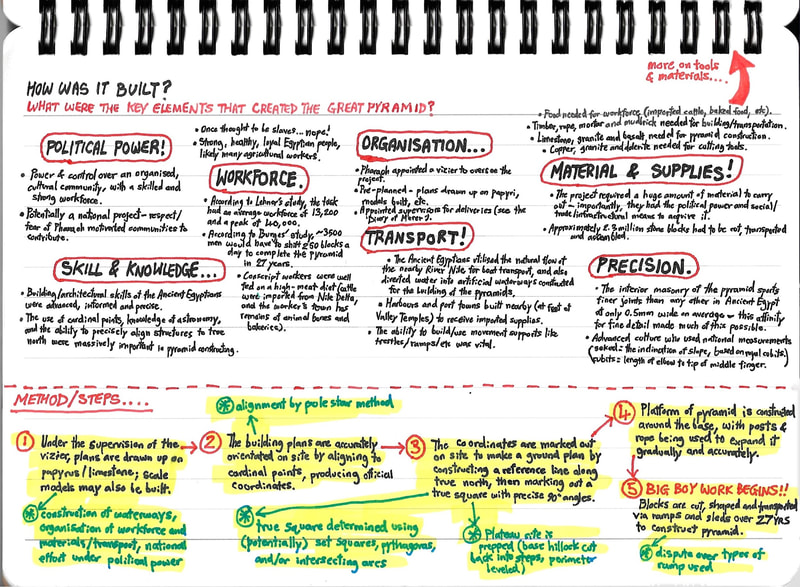 more on tools
& materials....
HOW WAS IT BUILT?
WHAT WERE THE KEY ELEMENTS THAT CREATED THE GREAT PYRAMID?
POLITICAL POWER!
• Power & control over an organised,
cultural community, with a skilled and
strong workforce.
• Potentially a national project - respect/
fear of Pharaoh motivated communities to
contribute.
SKILL & KNOWLEDGE...
• Building/architectural skills of the Ancient Egyptians
were advanced, informed and precise.
• The use of cardinal points, knowledge of astronomy,
and the ability to precisely align structures to true
north were massively important to pyramid constructing.
• Once thought to be slaves... nope!
• Strong, healthy, loyal Egyptian people,
likely many agricultural workers.
WORKFORCE.
• According to Lehner's study, the task
had an average workforce of 13,200
and a peak of 40,000.
• According to Burges' study, ~3500
men would have to shift 250 blocks a
day to complete the pyramid
in 27 years.
• Conscript workers were well
fed on a high-meat diet (cattle
were imported from Nile Delta,
and the worker's town has
remains of animal bones and
bakeries).
ORGANISATION...
• Pharaoh appointed a vizier to oversee the
project.
• Pre-planned - plans drawn up on papyri,
models built, etc.
• Appointed supervisors for deliveries (see the
Diary of Merer).
TRANSPORT!
• The Ancient Egyptians utilised the natural flow of
the nearby River Nile for boat transport, and also
diverted water into artificial waterways constructed
for the building of the pyramids.
• Harbours and port towns built nearby (at foot of
Valley Temples) to receive imported supplies.
• The ability to build/use movement supports like
trestles/ramps/etc was vital.
• Food needed for workforce (imported cattle, baked food, etc).
• Timber, rope, mortar and mudbrick needed for building/transportation.
• Limestone, granite and basalt, needed for pyramid construction.
• Copper, granite and dolerite needed for cutting tools.
MATERIAL & SUPPLIES!
• The project required a huge amount of material to carry
out - importantly, they had the political power and social/
trade/infrastructural means to acquire it.
• Approximately 2.3 million stone blocks had to be cut, transported
and assembled.
PRECISION.
• The interior masonry of the pyramid sports
finer joints than any other in Ancient Egypt
at only 0.5mm wide on average - this affinity
for fine detail made much of this possible.
• Advanced culture who used national measurements
(seked = the inclination of slope, based on royal cubits)
(cubits = length of elbow to tip of middle finger).
METHOD/STEPS....
* alignment by pole star method
1 Under the supervision of the
vizier, plans are drawn up on
papyrus/limestone; scale
models may also be built.
* construction of waterways,
organisation of workforce and
materials/transport, national
effort under political power
2 The building plans are accurately
orientated on site by aligning to
cardinal points, producing official
coordinates.
* true square determined using
(potentially) set squares, pythagoras,
and/or intersecting arcs
3 The coordinates are marked out
on site to make a ground plan by
constructing a reference line along
true north, then marking out a
true square with precise 90° angles.
* Plateau site is
prepped (base hillock cut
back into steps, perimeter
leveled)
4 Platform of pyramid is constructed
around the base, with posts &
rope being used to expand it
gradually and accurately.
5 BIG BOY WORK BEGINS!!
Blocks are cut, shaped and transported
via ramps and sleds over 27yrs
to construct pyramid.
* dispute over types of
ramp used